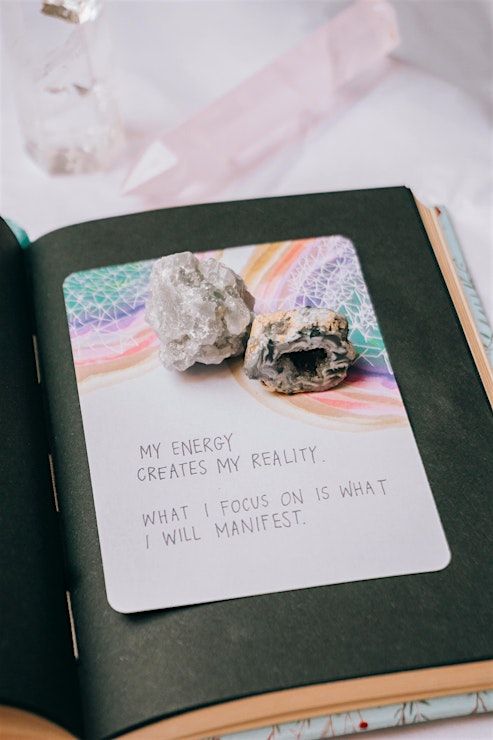 MY ENERGY
CREATES MY REALITY.
WHAT I FOCUS ON IS WHAT
I WILL MANIFEST.